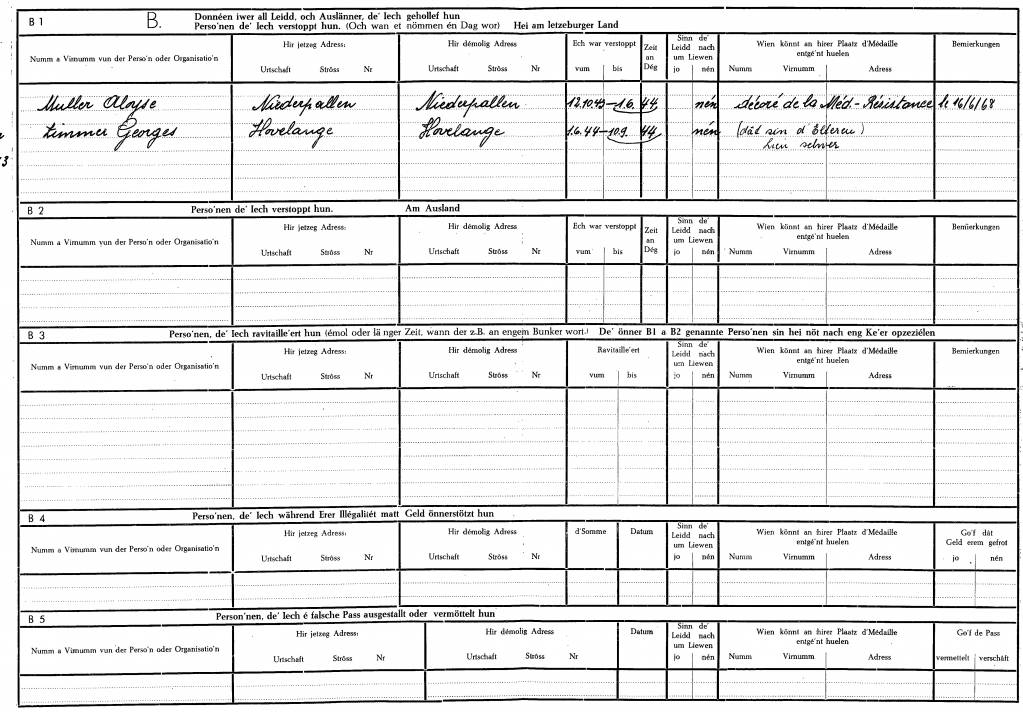 B 1 B. Donnéen iwer all Leidd, och Auslänner, de' Iech gehollef hun
Perso'nen de' Iech verstoppt hun. (Och wan et nömmen én Dag wor) Hei am letzeburger Land
Numm a Virnumm vun der Perso'n oder Organisatio'n
Hir jetzeg Adress:
Urtschaft Ströss Nr
Hir démolig Adress
Urtschaft Ströss Nr
Ech war verstoppt
vum bis
Zeit
an
Dég
Sinn de'
Leidd nach
um Liewen
jo nén
Wien könnt an hirer Plaatz d'Médaille
entgé'nt huelen
Numm Virnumm Adress
Bemierkungen
Muller Aloyse Niederpallen Niederpallen 12.10.43—1.6. 44. nén décoré de la Méd.-Résistance le 16/6/68
Zimmer Georges Hovelange Hovelange 1.6.44—10.9. 44 nén (dât sin d'Elteren)
3
B 2 Perso'nen de' Iech verstoppt hun. Am Ausland
Numm a Virnumm vun der Perso'n oder Organisatio'n
Hir jetzeg Adress:
Urtschaft Ströss Nr
Hir démolig Adress
Urtschaft Ströss Nr
Ech war verstoppt
vum bis
Zeit
an
Dég
Sinn de'
Leidd nach
um Liewen
jo nén
Wien könnt an hirer Plaatz d'Médaille
entgé'nt huelen
Numm Virnumm Adress
Bemierkungen
B 3 Perso'nen, de' Iech ravitaille'ert hun (émol oder länger Zeit, wann der z.B. an engem Bunker wort.) De' önner B1 a B2 genannte Perso'nen sin hei nöt nach eng Ke'er opzeziélen
Numm a Virnumm vun der Perso'n oder Organisatio'n
Hir jetzeg Adress:
Urtschaft Ströss Nr
Hir démolig Adress
Urtschaft Ströss Nr
Ravitaille'ert
vum bis
Sinn de'
Leidd nach
um Liewen
jo nén
Wien könnt an hirer Plaatz d'Médaille
entgé'nt huelen
Numm Virnumm Adress
Bemierkungen
B 4 Perso'nen, de' Iech während Erer Illégalitét matt Geld önnerstötzt hun
Numm a Virnumm vun der Perso'n oder Organisatio'n
Hir jetzeg Adress:
Urtschaft Ströss Nr
Hir démolig Adress
Urtschaft Ströss Nr
d'Somme
Datum
Sinn de'
Leidd nach
um Liewen
jo nén
Wien könnt an hirer Plaatz d'Médaille
entgé'nt huelen
Numm Virnumm Adress
Go'f dât
Geld erem gefrot
jo nén
B 5 Person'nen, de' Iech é falsche Pass ausgestallt oder vermöttelt hun
Numm a Virnumm vun der Perso'n oder Organisatio'n
Hir jetzeg Adress:
Urtschaft Ströss Nr
Hir démolig Adress
Urtschaft Ströss Nr
Datum
Sinn de'
Leidd nach
um Liewen
jo nén
Wien könnt an hirer Plaatz d'Médaille
entgé'nt huelen
Numm Virnumm Adress
Go'f de Pass
vermettelt verschâft